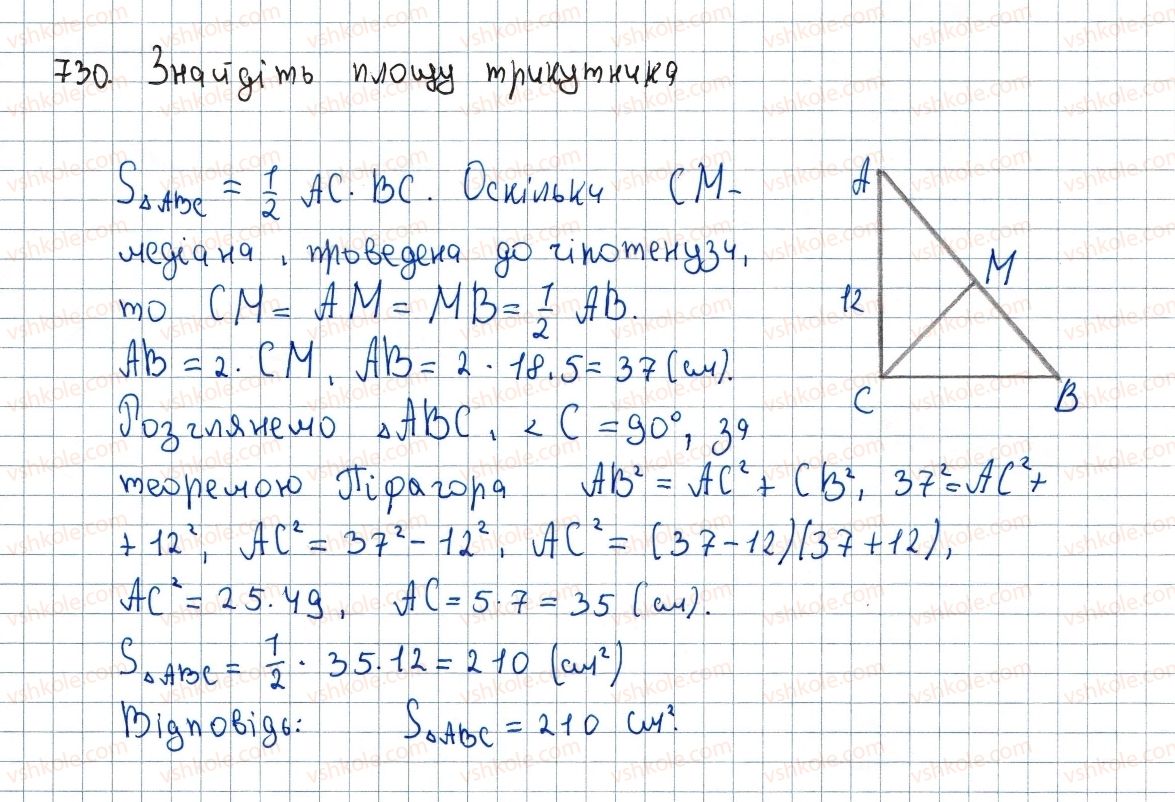 730. Знайдіть площу трикутника
S△ABC = 1/2 AC · BC. Оскільки CM-
медіана, проведена до гіпотенузи,
то CM = AM = MB = 1/2 AB.
AB = 2 · CM, AB = 2 · 18,5 = 37 (см).
Розглянемо △ABC, ∠C = 90°, за
теоремою Піфагора AB² = AC² + CB², 37² = AC² +
+ 12², AC² = 37² - 12², AC² = (37-12)(37+12),
AC² = 25 · 49, AC = 5 · 7 = 35 (см).
S△ABC = 1/2 · 35 · 12 = 210 (см²)
Відповідь: S△ABC = 210 см².
A
M
12
C
B